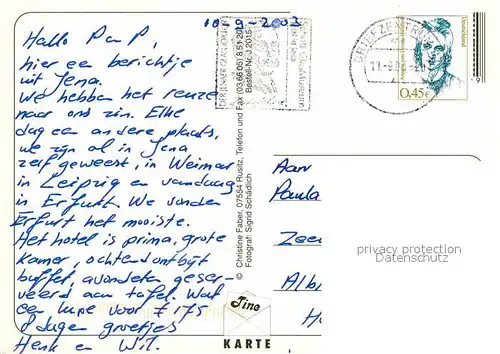 10-9-2003
Hallo P en P,
hier een berichtje
uit Jena.
We hebben het reuze
naar ons zin. Elke
dag een andere plaats,
we zijn al in Jena
zelf geweest, in Weimar
in Leipzig en vandaag
in Erfurt. We vonden
Erfurt het mooiste.
Het hotel is prima, grote
kamer, ochtendontbijt
buffet, avondeten geser-
veerd aan tafel. Wat
een luxe voor € 175
8 dagen groetjes
Henk en Wil.
© Christine Faber, 07554 Rusitz, Telefon und Fax (03 66 05) 8 51 20
Fotograf: Sigrid Schädlich
Bestell-Nr. J 2015
Tino
KARTE
BRIEFZENTRUM
Deutschland
0,45 €
Aan
Paula
Zee
Alb
privacy protection
Datenschutz